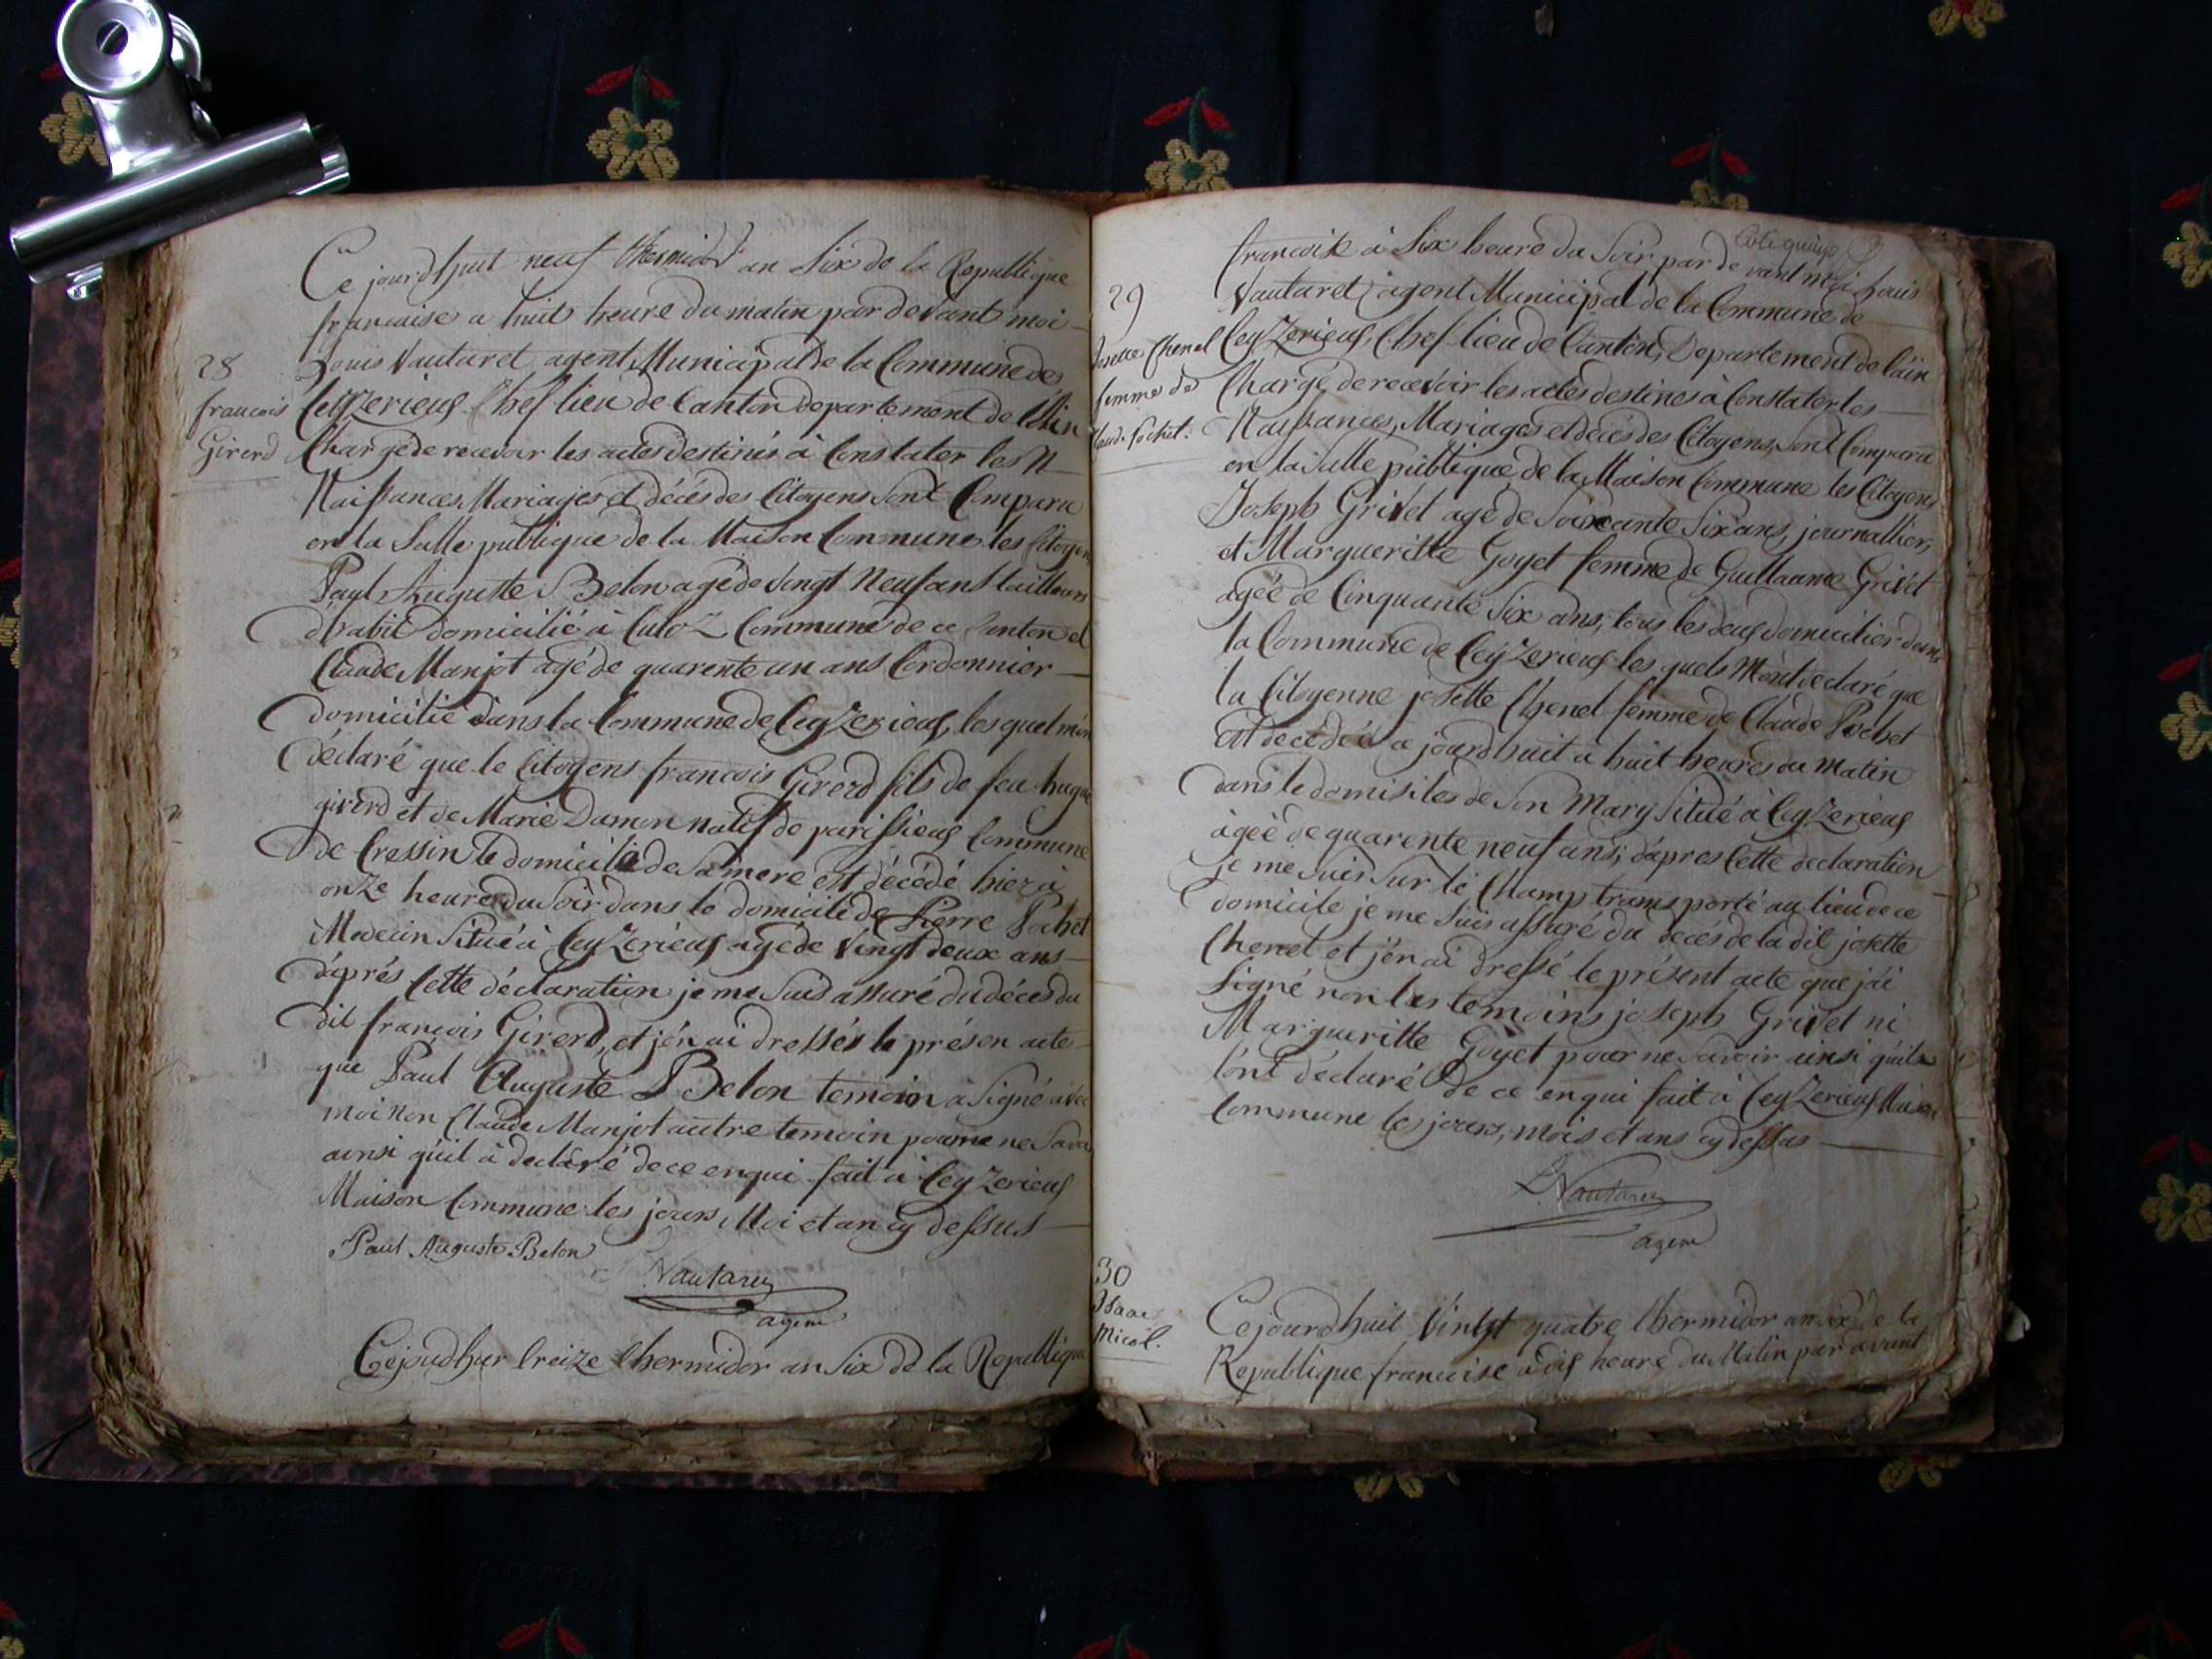 Ce jourdhuit neuf thermidor an Six de la Republique
francaise a huit heure du matin par devant moi
Louis Vautaret agent Municipal de la Commune de
28
francois
Girerd
Ceyzerieuf Chef lieu de Canton departement de l'Ain
Chargé de recevoir les actes destinés à Constater les N
Naissances, Mariages et décés des Citoyens sont Comparu
en la Salle publique de la Maison Commune les Citoyens
Paul Auguste Belon agé de vingt Neuf ans tailleurs
d'habit domicilié à Culoz Commune de ce Canton et
Claude Manjot agé de quarente un ans Cordonnier
domicilié dans la Commune de Ceyzerieuf, les quel mon
déclaré que le Citoyens francois Girerd fils de feu hugue
girerd et de Marie Dumon natif de parissieuf Commune
de Cressin le domicile de Sa mere est décédé hier à
onze heure du Soir dans le domicile de Pierre Pochet
Medecin Situé à Ceyzerieuf agé de Vingt deux ans
d'aprés Cette déclaration je me Suis assuré du déces du
dit francois Girerd, et j'én ai dressés le présen acte
que Paul Auguste Belon temoin a Signé avec
moi non Claude Manjot autre temoin pour ne Savoi
ainsi qu'il à declaré de ce enqui fait à Ceyzerieuf
Maison Commune les jours, Moi et an cy dessus
Paul Auguste Belon
Vautaret
agent
Cejoudhui treize thermidor an Six de la Republique
francoise à Six heure du Soir par de vant moi Louis
Vautaret agent Municipal de la Commune de
29
Josette Chenel
femme de
Claude Pochet.
Ceyzerieuf, Chef lieu de Canton, Departement de l'ain
Chargé de recevoir les actes destinés à Constater les
Naissances, Mariages et décès des Citoyens, sont Comparu
en la Salle publique de la Maison Commune les Citoyens
Joseph Grivet agé de Soixcante Six ans, journallier,
et Margueritte Goyet femme de Guillaume Grivet
agéé de Cinquante Six ans, tous les deuf domicilier dans
la Commune de Ceyzerieuf les quels Mont declaré que
la Citoyenne josette Chenel femme de Claude Pochet
est decédéé ce jourdhuit a huit heures du Matin
dans le domisiles de Son Mary Situé à Ceyzerieuf
agéé de quarente neuf ans; d'apres Cette declaration
je me suis Sur le Champ transporté au lieu de ce
domicile je me Suis assuré du decés de la dit josette
Chenel et j'én ai dressé le présent acte que j'ái
Signé non les temoins joseph Grivet ni
Margueritte Goyet pour ne Savoir ainsi qu'ils
l'ont déclaré de ce enqui fait à Ceyzerieuf Maison
Commune les jours, mois et ans cy dessus
L Vautaret
agent
30
Isaac
Micol.
Cejourdhuit Vintgt quatre thermidor an six de la
Republique francaise a dif heure du Matin par avant